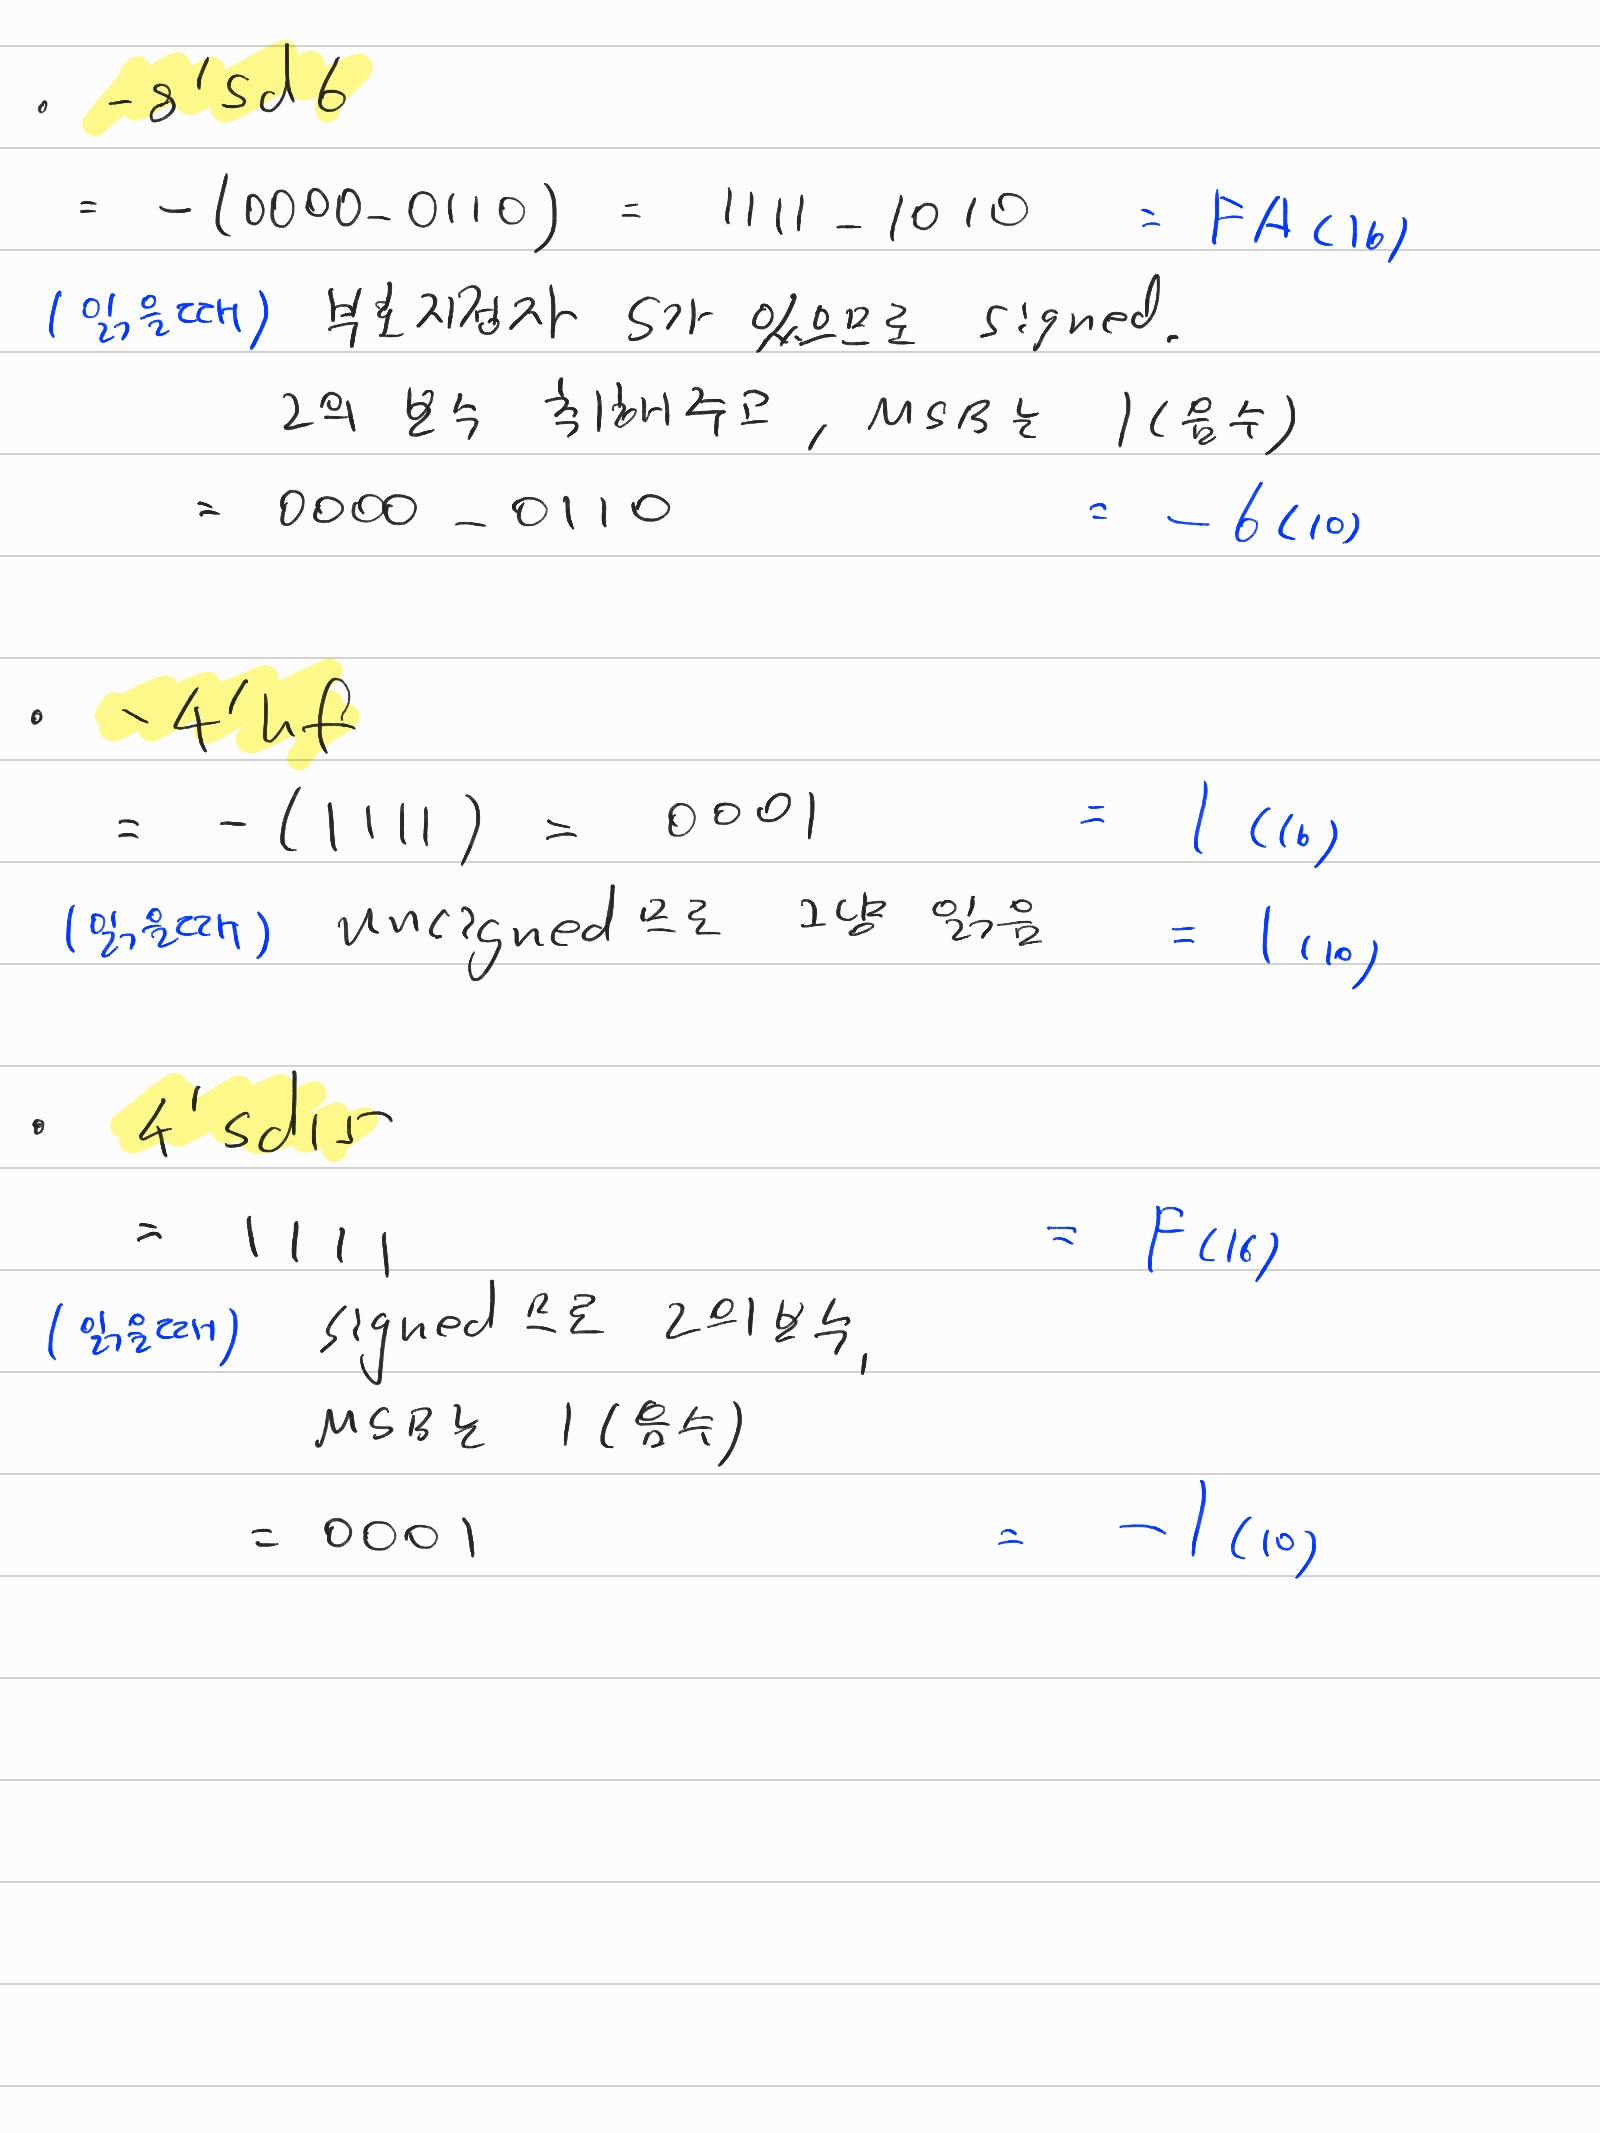 • -8'sd6
= -(0000_0110) = 1111_1010 = FA(16)
(읽을때) 부호지정자 s가 있으므로 signed.
2의 보수 취해주고, MSB는 1(음수)
= 0000_0110 = -6(10)
• -4'hf
= -(1111) = 0001 = 1(16)
(읽을때) unsigned으로 그냥 읽음 = 1(10)
• 4'sd15
= 1111 = F(16)
(읽을때) signed으로 2의보수,
MSB는 1(음수)
= 0001 = -1(10)